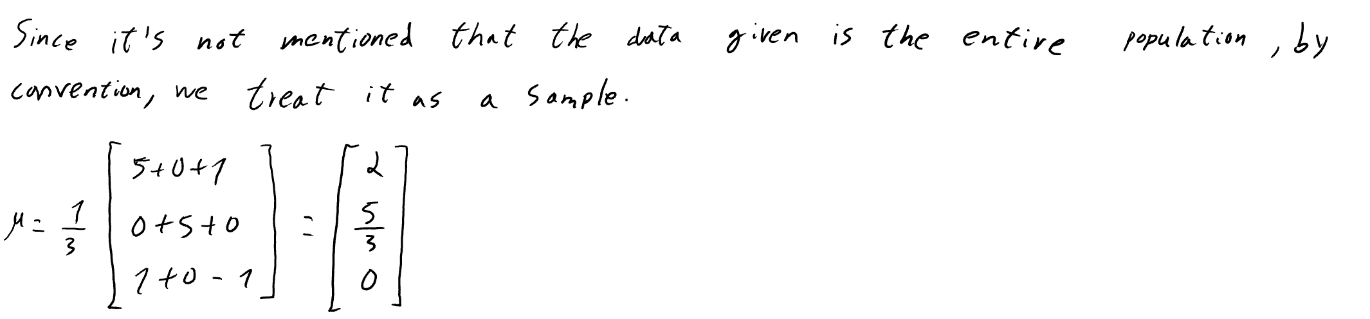 Since it's not mentioned that the data given is the entire population, by
convention, we treat it as a sample.
μ = 1/3 [5+0+1; 0+5+0; 1+0-1] = [2; 5/3; 0]